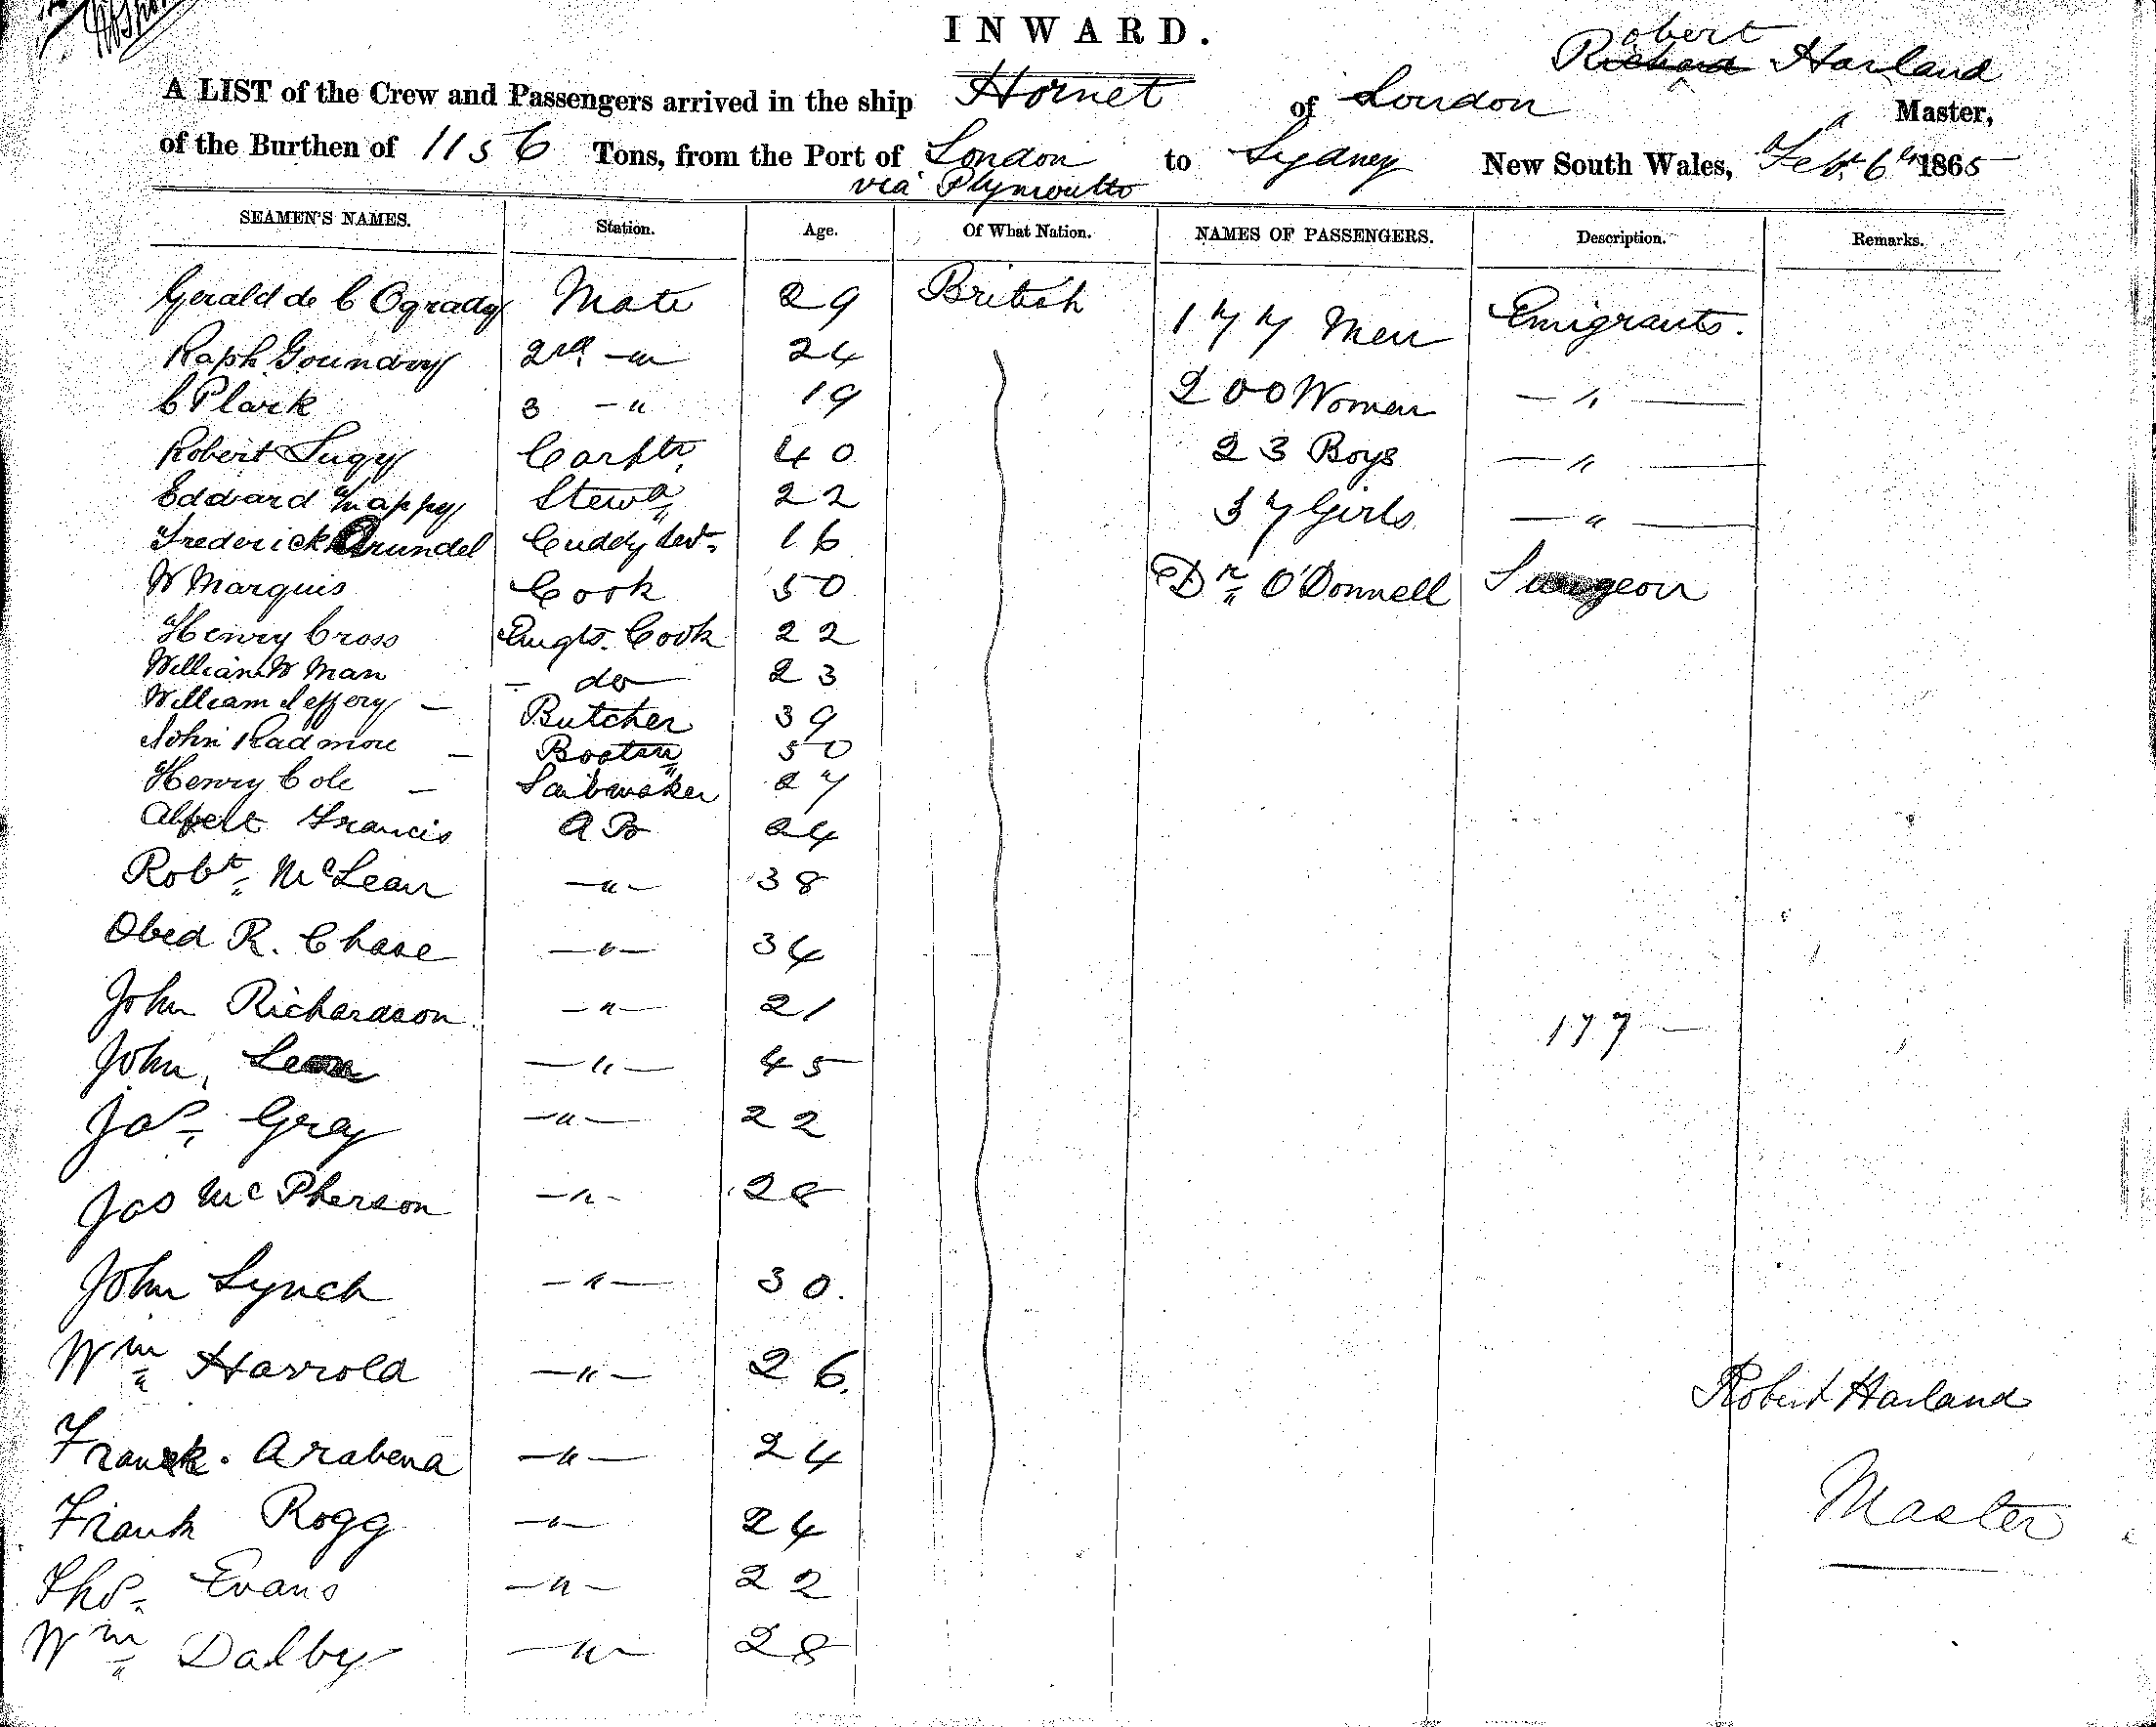 INWARD.
Robert Harland
A LIST of the Crew and Passengers arrived in the ship Hornet of London Master,
of the Burthen of 1156 Tons, from the Port of London to Sydney New South Wales, Feby 6th 1865
via Plymouth
SEAMEN'S NAMES. Station. Age. Of What Nation. NAMES OF PASSENGERS. Description. Remarks.
Gerald de C Ogrady Mate 29 British 177 Men Emigrants.
Raph Goundry 2nd — " 24
C Plark 3 — " 19 200 Women — " —
Robert Carptr 40 23 Boys — " —
Edward Stewd 22 37 Girls — " —
Frederick Arundel Cuddy Sevt 16
W Marquis Cook 50 Dr O'Donnell Surgeon
Henry Cross Emgts. Cook 22
William W Man — do — 23
William Jeffery — Butcher 39
John Radmore — Boatsn 50
Henry Cole — Sailmaker 27
Albert Francis AB 24
Robt McLean — " — 38
Obed R. Chase — " — 34
John Richardson — " — 21
177 —
John — " — 45
Jas Gray — " — 22
Jas McPherson — " — 28
John Lynch — " — 30.
Wm Harrold — " — 26.
Robert Harland
Frank. Arabena — " — 24
Master
Frank Rogg — " — 24
Thos Evans — " — 22
Wm Dalby — " — 28